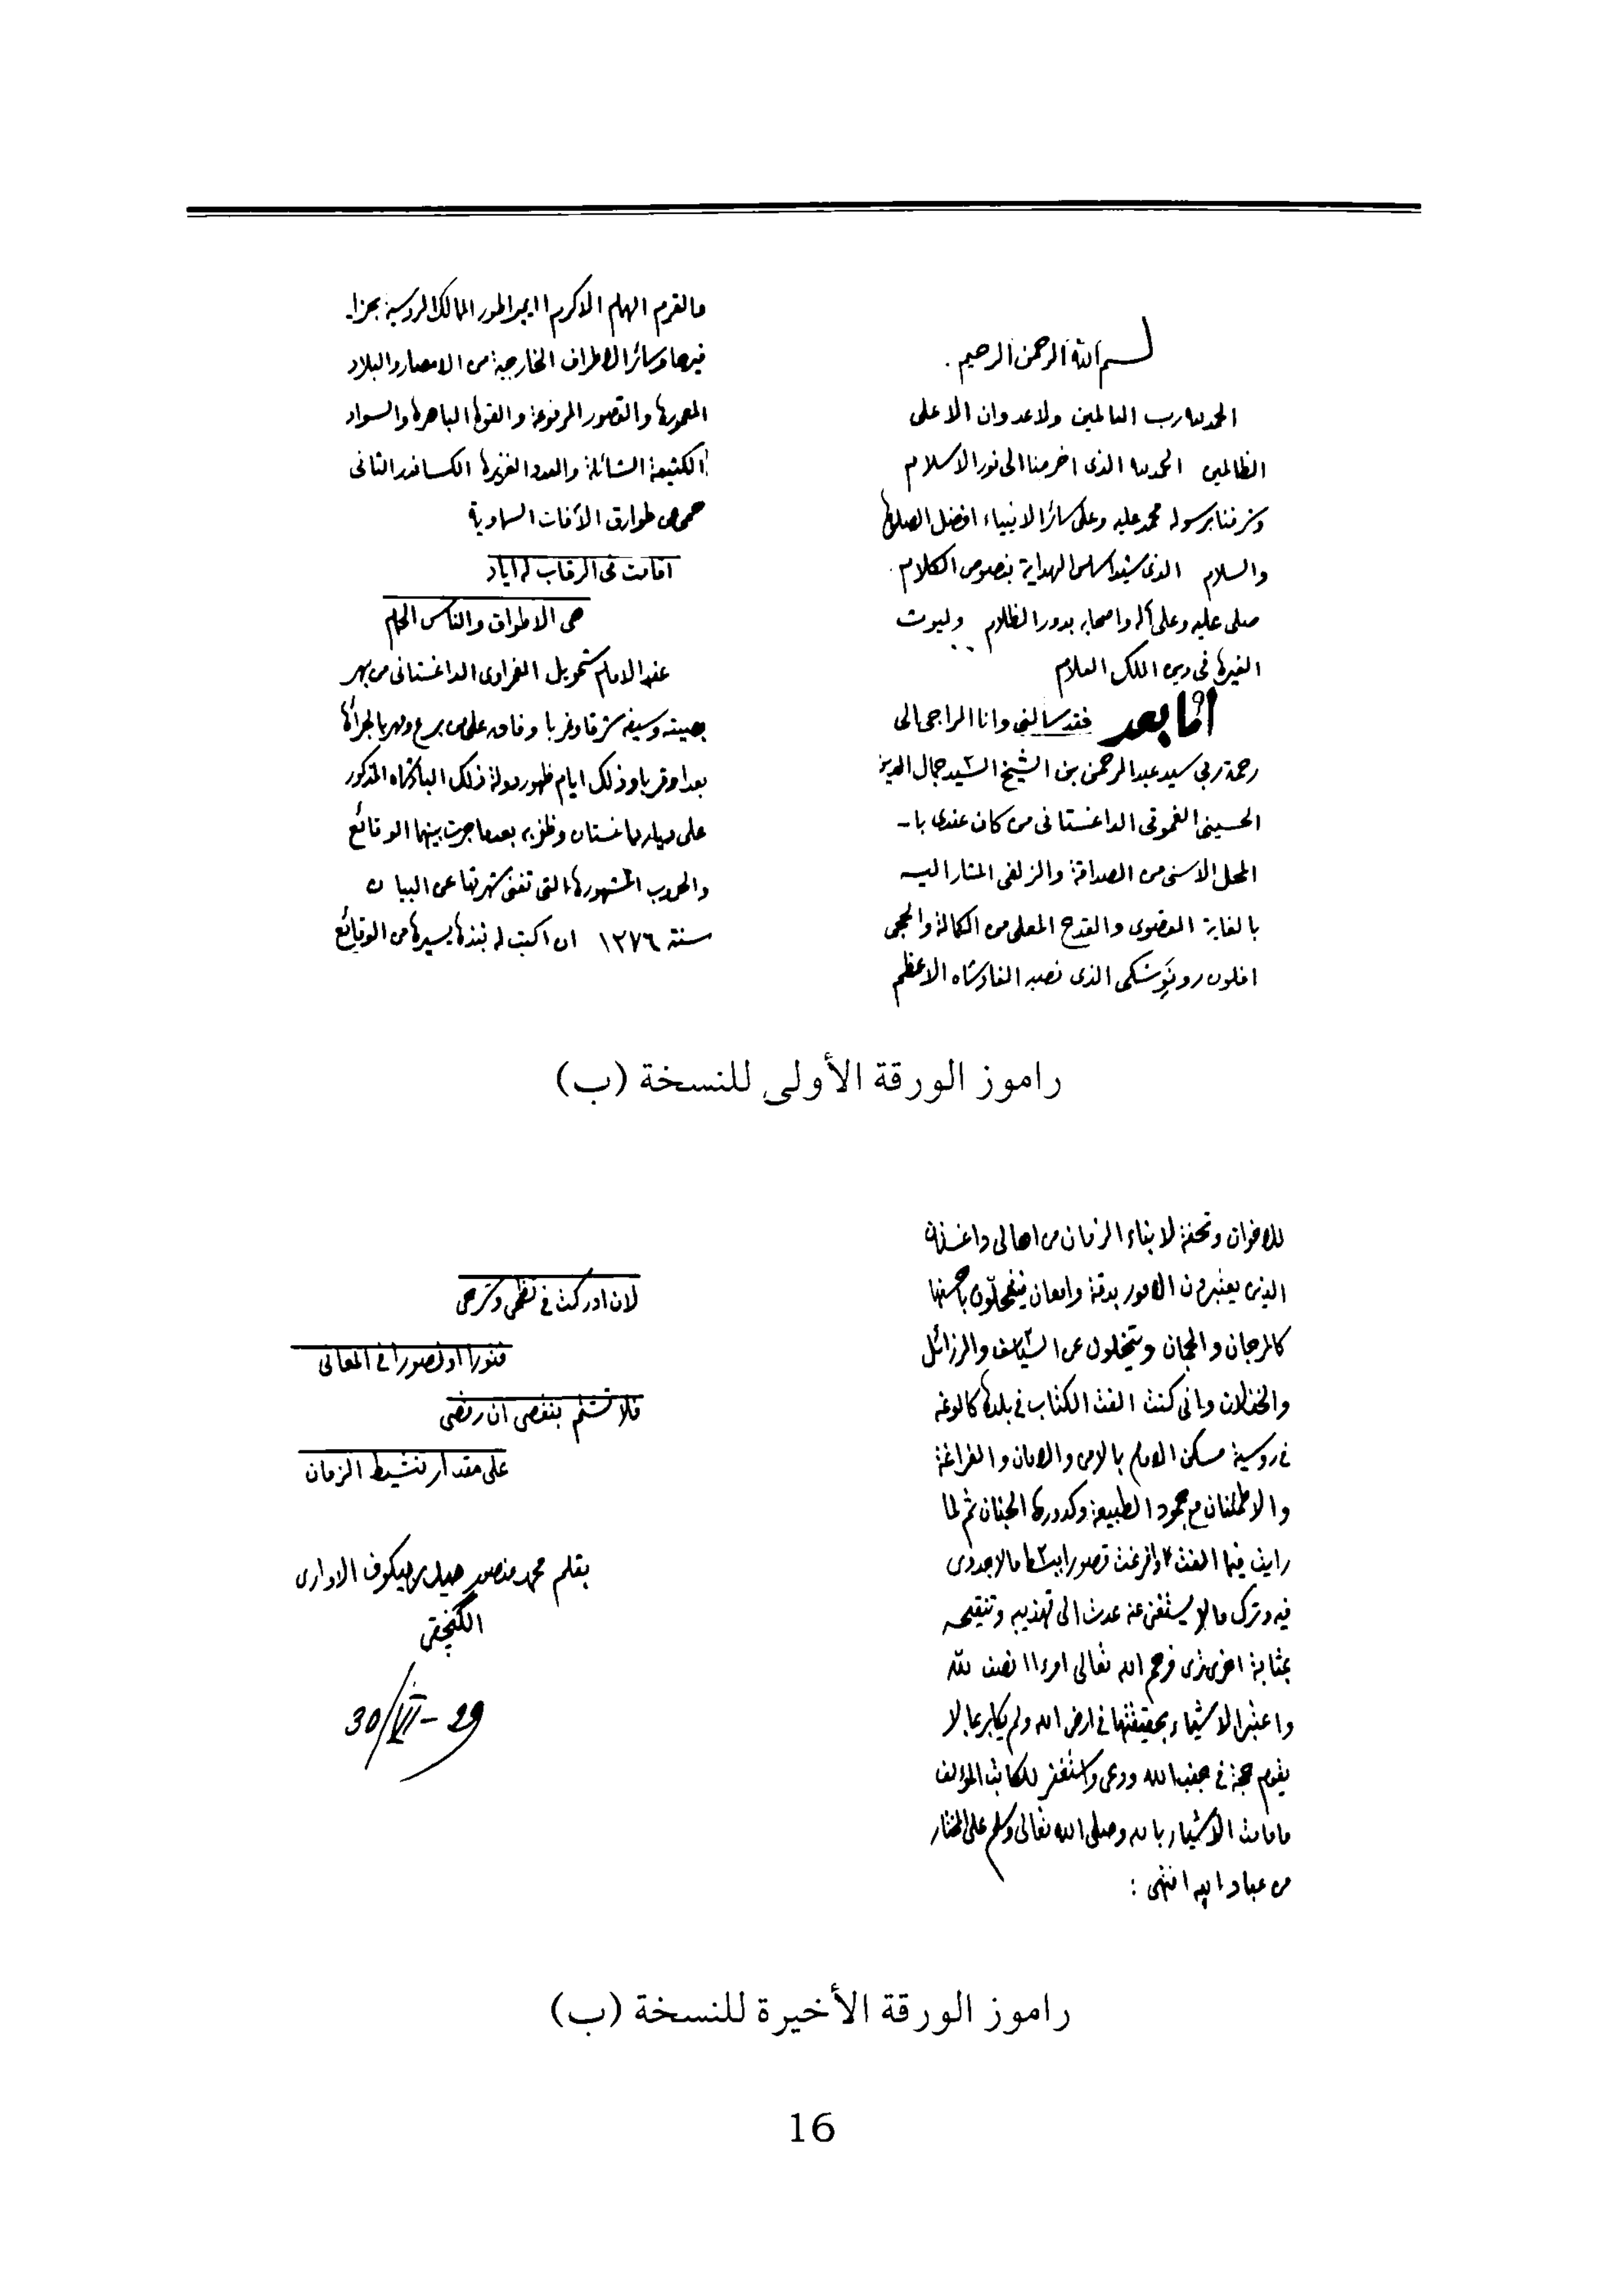 بسم الله الرحمن الرحيم .
الحمد لله رب العالمين ولا عدوان الا على
الظالمين الحمد لله الذى اخرجنا الى نور الاسلام
وشرفنا برسوله محمد عليه وعلى سائر الانبياء افضل الصلوة
والسلام الذى شيد اساس الهداية بنصوص الكلام .
صلى عليه وعلى آله واصحابه بدور الظلام وليوث
الغيرة فى دين الملك العلام
أما بعد فقد سالنى وانا الراجى الى
رحمة ربى سيد عبد الرحمن بن الشيخ السيد جمال الدين
الحسينى الغموقى الداغستانى من كان عندى با
لمحل الاسنى من الصداقة والزلفى المشار اليه
بالغاية القصوى والقدح المعلى من الكمالة والحجى
افلون رونوشكى الذى نصبه الفادشاه الاعظم
والقرم الهمام الاكرم ايمبراطور الممالك الروسية
وسائر الاطراف الخارجية من الامصار والبلاد
المعمورة والقصور المرفوعة والقوة الباهرة والسواد
الكثيفة الشائلة والعدد الغزيرة الكساندر الثانى
طوارق الآفات السماوية
اقامت فى الرقاب له اياد
هى الاطواق والناس الحمام
عند الامام شمويل الغمراوى الداغستانى من بهر
بصيته وسيفه شرقا وغربا وفاق على من برع ومهر بالجرأة
بعدا وقربا وذلك ايام ظهور دولة ذلك البادشاه المذكور
على ديار داغستان وظفره بعد ما جرت بينهما الوقائع
والحروب المشهورة التى تغنى شهرتها عن البيان
سنة ١٢٧٦ ان اكتب له نبذة يسيرة من الوقايع
راموز الورقة الأولى للنسخة (ب)
للاخوان وتحفة لابناء الزمان من اهالى داغستان
الذين يعتبرون الامور بدقة وامعان فيتحلون باحسنها
كالمرجان والجمان ويتخلون عن والرزائل
والخذلان وانى كنت الفت الكتاب فى بلدة كالوغه
فى روسية مسكن الامام بالامن والامان والفراغة
والاطمئنان مع جمود الطبيعة وكدورة الجنان ثم لما
رايت فيما الفت وافرغت قصورا ما لا جدوى
فيه وترك ما لا يستغنى عنه عدت الى تهذيبه وتنقيحه
بمثابة اخرى فرحم الله تعالى امرءا انصف لله
واعتبر الاشياء بحقيقتها فى ارض الله ولم يكابر بما لا
يقوم حجة فى جنب الله ودعى واستغفر للكاتب المؤلف
ما قامت الاشياء بالله وصلى الله تعالى وسلم على المختار
من عباد الله انتهى :
لان ادركت فى نظمى وشرحى
فتورا او قصورا فى المعانى
فلا تشتم بنقصى ان رقصى
على مقدار تنشيط الزمان
بقلم محمد منصور الاوارى
30/VI-29
راموز الورقة الأخيرة للنسخة (ب)
16